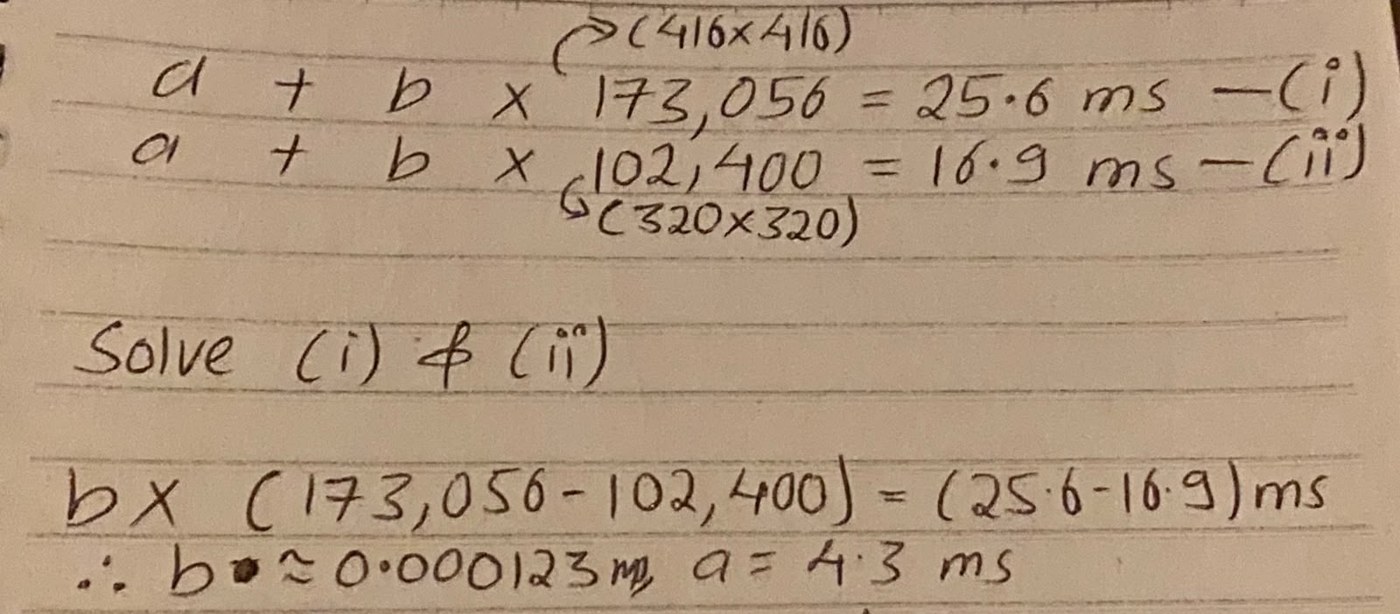 (416×416)
a + b × 173,056 = 25.6 ms —(i)
a + b × 102,400 = 16.9 ms —(ii)
(320×320)
Solve (i) & (ii)
b× (173,056-102,400) = (25.6-16.9)ms
∴ b ≈ 0.000123 a = 4.3 ms